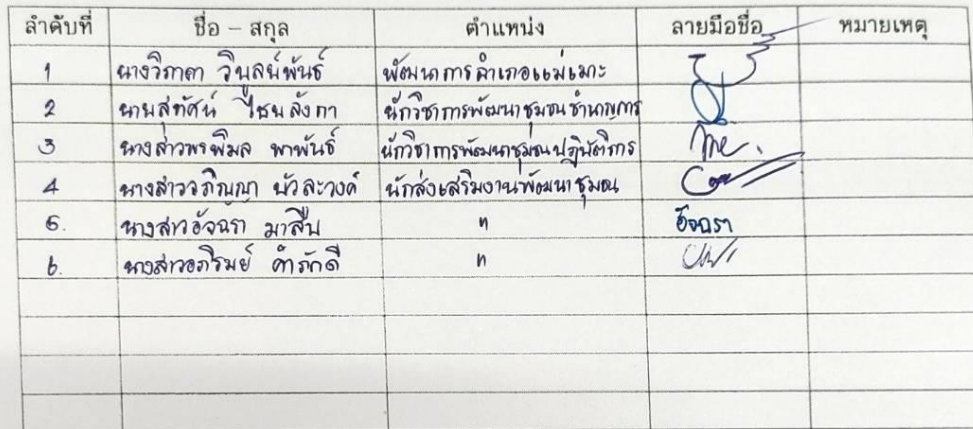 ลำดับที่ ชื่อ – สกุล ตำแหน่ง ลายมือชื่อ หมายเหตุ
1 นางวิภาดา วิบูลย์พันธ์ พัฒนาการอำเภอแม่เมาะ
2 นายสุทัศน์ ไชยลังกา นักวิชาการพัฒนาชุมชนชำนาญการ
3 นางสาวพรพิมล พาพันธ์ นักวิชาการพัฒนาชุมชนปฏิบัติการ
4 นางสาวอภิญญา บัวละวงค์ นักส่งเสริมงานพัฒนาชุมชน
5. นางสาวอัจฉรา มาสืบ " อัจฉรา
6. นางสาวอภิรมย์ คำภักดี "